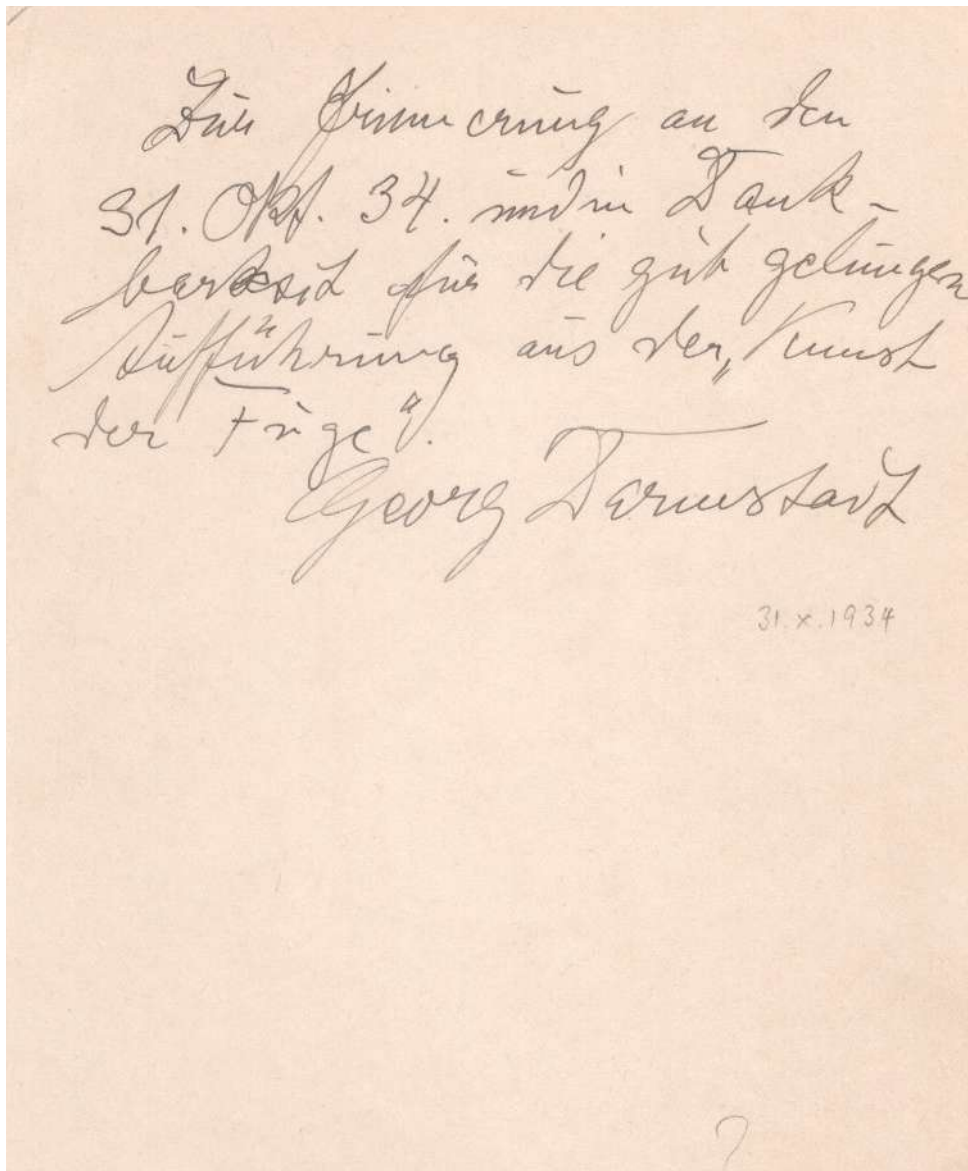 Zur Erinnerung an den
31. Okt. 34. und in Dank-
barkeit für die gut gelungen
Aufführung aus der „Kunst
der Fuge“.
Georg Darmstadt
31.X.1934
?